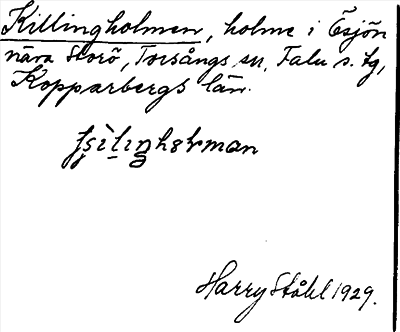 Killingholmen, holme i Ösjön
nära Storö, Torsångs sn, Falu s. tg,
Kopparbergs län.
Harry Ståhl 1929.